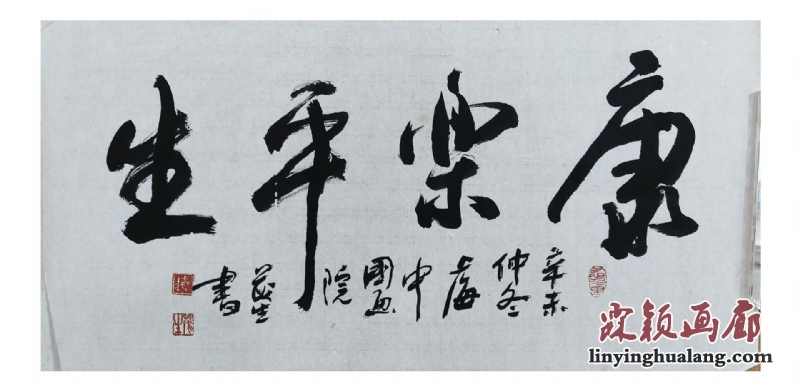 康樂平生
辛未
仲冬
上海
中
國画
院
書
霖颖画廊
linyinghualang.com